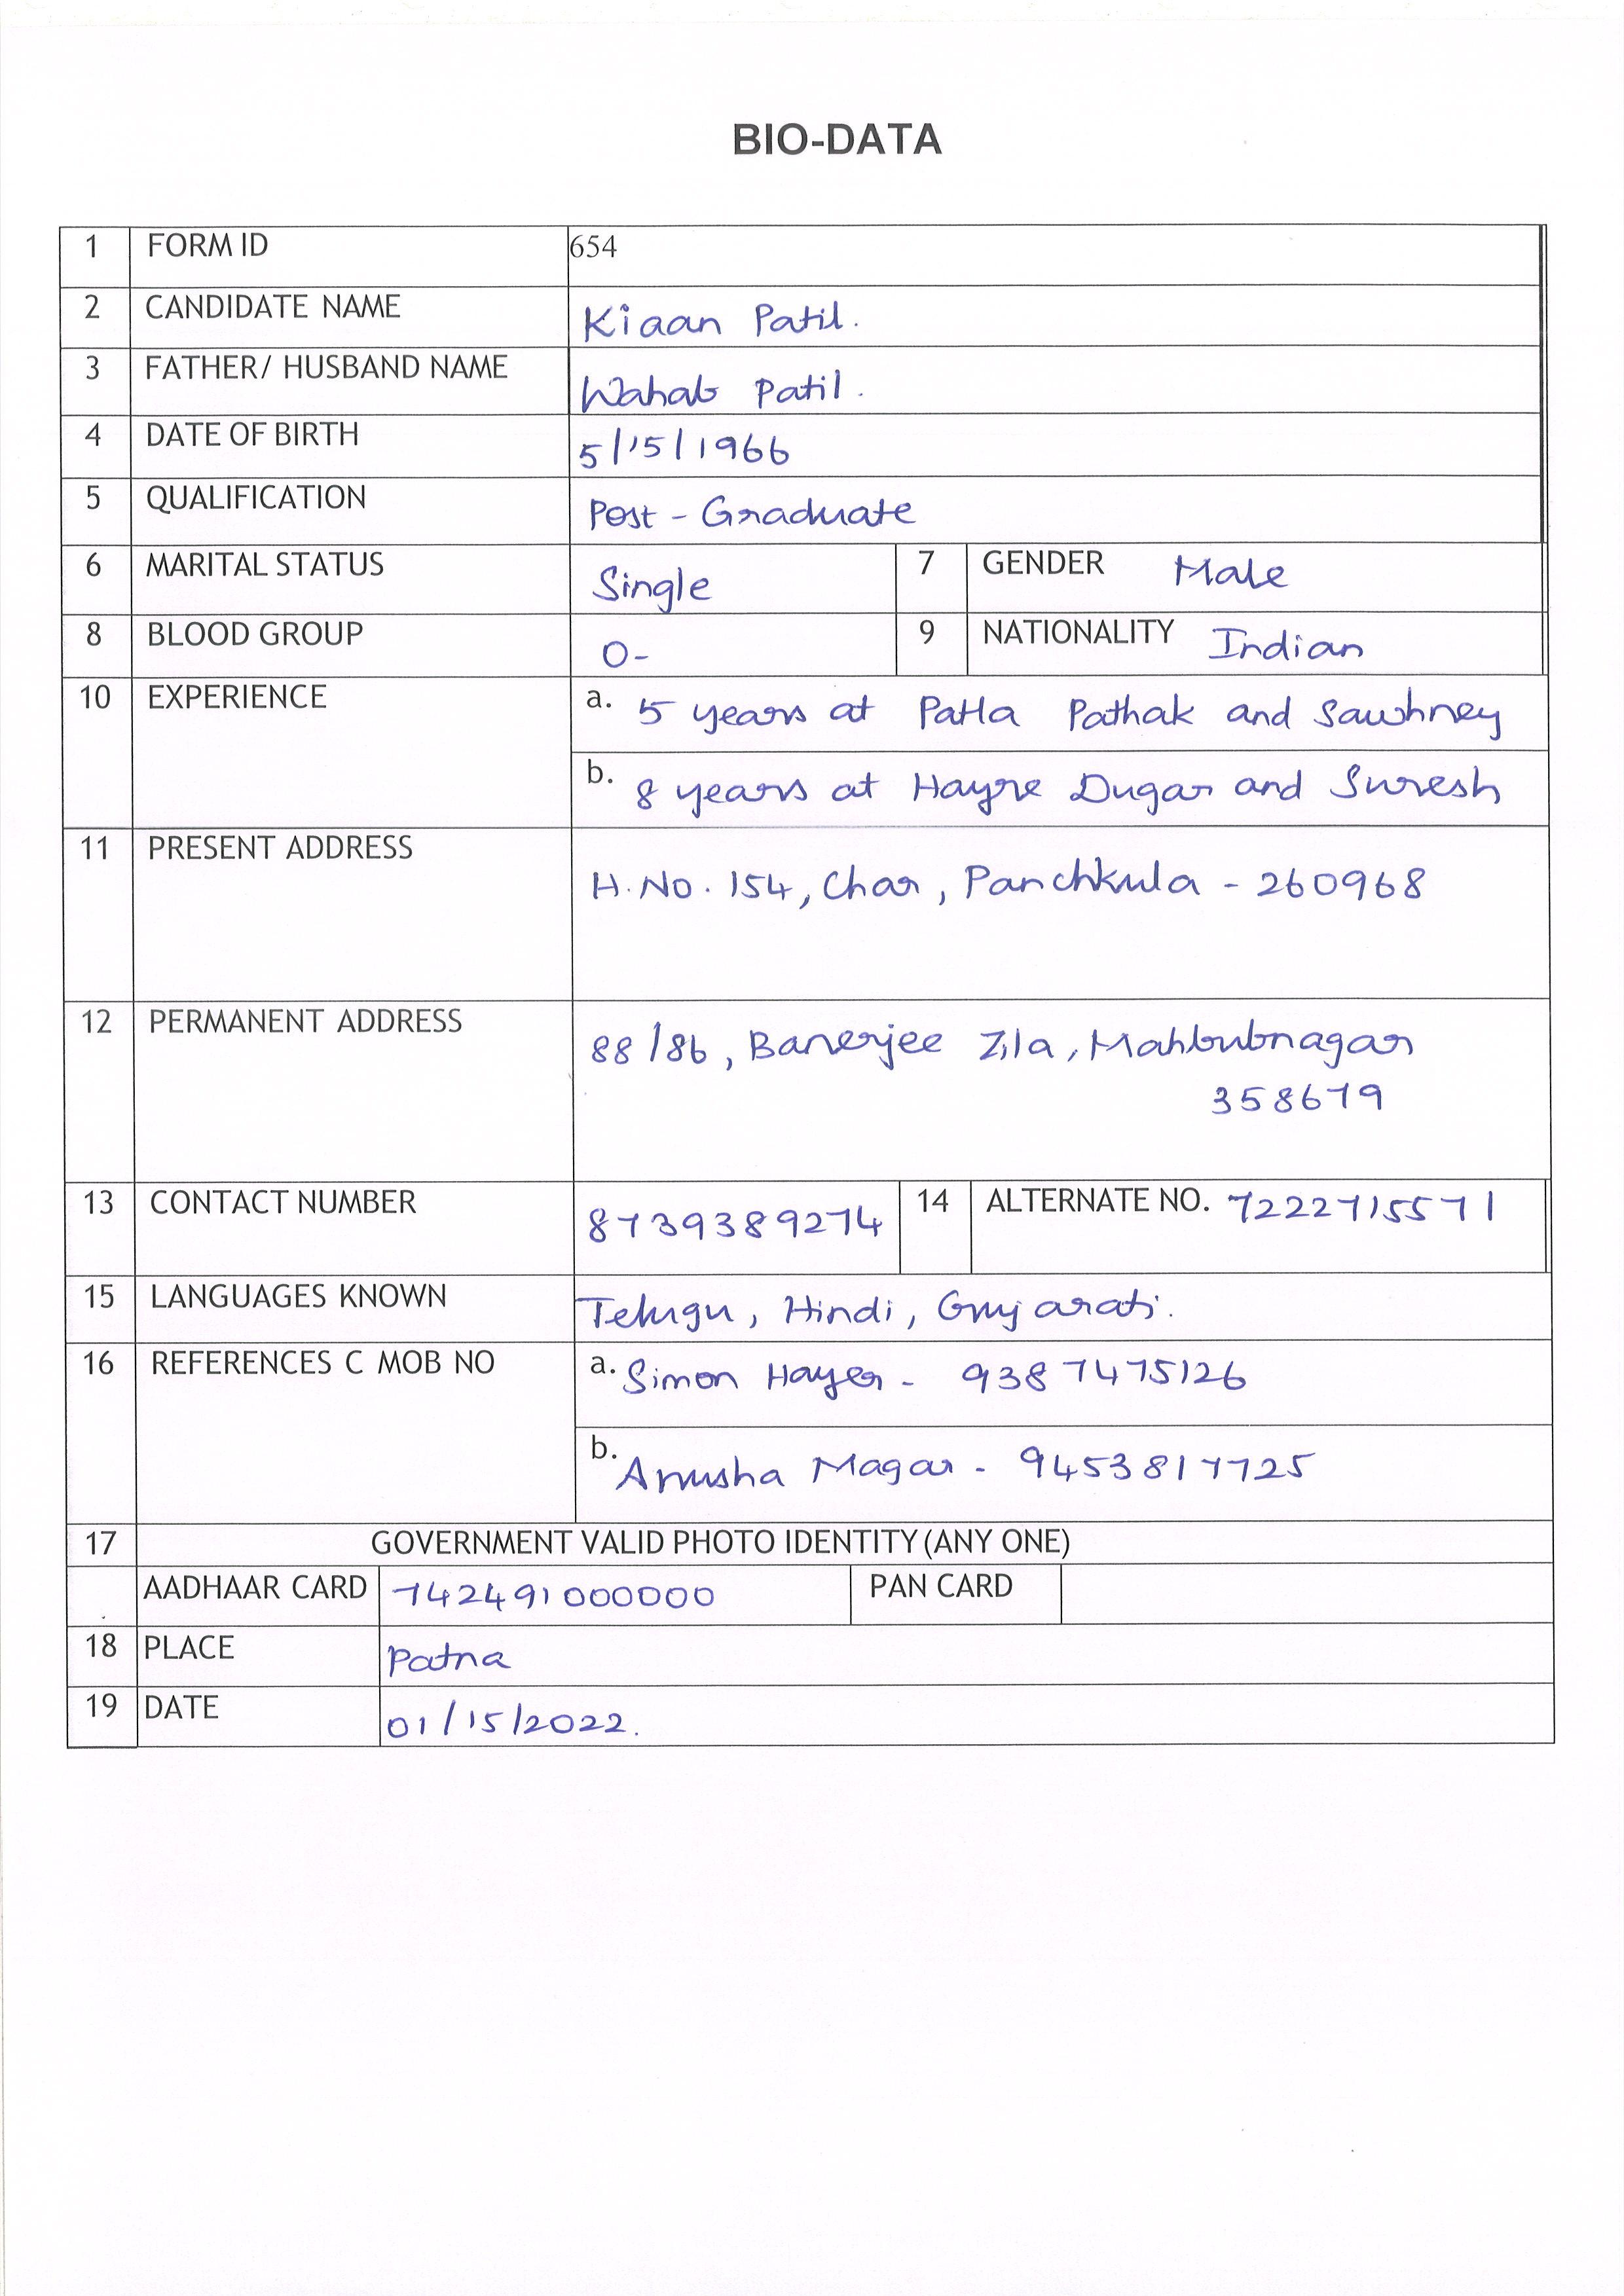 BIO-DATA
1 FORM ID 654
2 CANDIDATE NAME Kiaan Patil.
3 FATHER/ HUSBAND NAME Wahab Patil.
4 DATE OF BIRTH 5/15/1966
5 QUALIFICATION Post - Graduate
6 MARITAL STATUS Single 7 GENDER Male
8 BLOOD GROUP O- 9 NATIONALITY Indian
10 EXPERIENCE a. 5 years at Patla Pathak and Sawhney
b. 8 years at Hayre Dugar and Suresh
11 PRESENT ADDRESS H.No. 154, Char, Panchkula - 260968
12 PERMANENT ADDRESS 88/86, Banerjee Zila, Mahbubnagar
358679
13 CONTACT NUMBER 8739389274 14 ALTERNATE NO. 7222715571
15 LANGUAGES KNOWN Telugu, Hindi, Gujarati.
16 REFERENCES C MOB NO a. Simon Hayer - 9387475126
b. Anusha Magar - 9453817725
17 GOVERNMENT VALID PHOTO IDENTITY (ANY ONE)
AADHAAR CARD 742491000000 PAN CARD
18 PLACE Patna
19 DATE 01/15/2022.